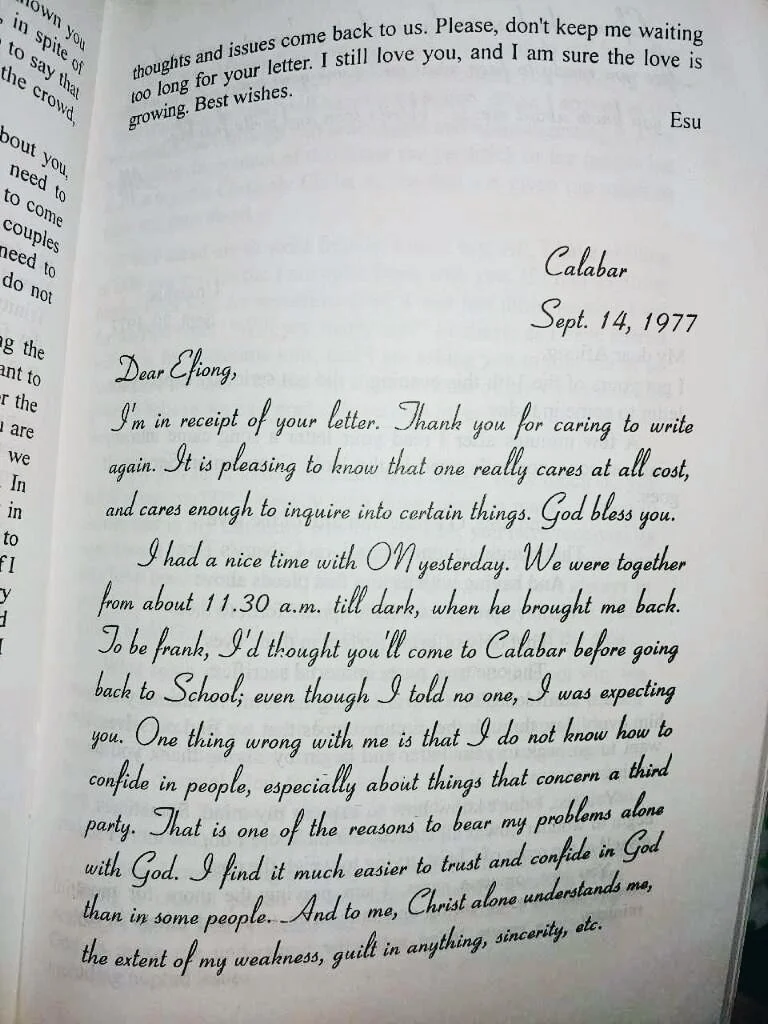 nown you
, in spite of
to say that
the crowd,
bout you,
need to
to come
couples
need to
do not
ng the
ant to
r the
are
we
In
in
to
f I
ry
d
I
thoughts and issues come back to us. Please, don't keep me waiting
too long for your letter. I still love you, and I am sure the love is
growing. Best wishes.
Esu
Calabar
Sept. 14, 1977
Dear Efiong,
I'm in receipt of your letter. Thank you for caring to write
again. It is pleasing to know that one really cares at all cost,
and cares enough to inquire into certain things. God bless you.
I had a nice time with ON yesterday. We were together
from about 11.30 a.m. till dark, when he brought me back.
To be frank, I'd thought you'll come to Calabar before going
back to School; even though I told no one, I was expecting
you. One thing wrong with me is that I do not know how to
confide in people, especially about things that concern a third
party. That is one of the reasons to bear my problems alone
with God. I find it much easier to trust and confide in God
than in some people. And to me, Christ alone understands me,
the extent of my weakness, guilt in anything, sincerity, etc.